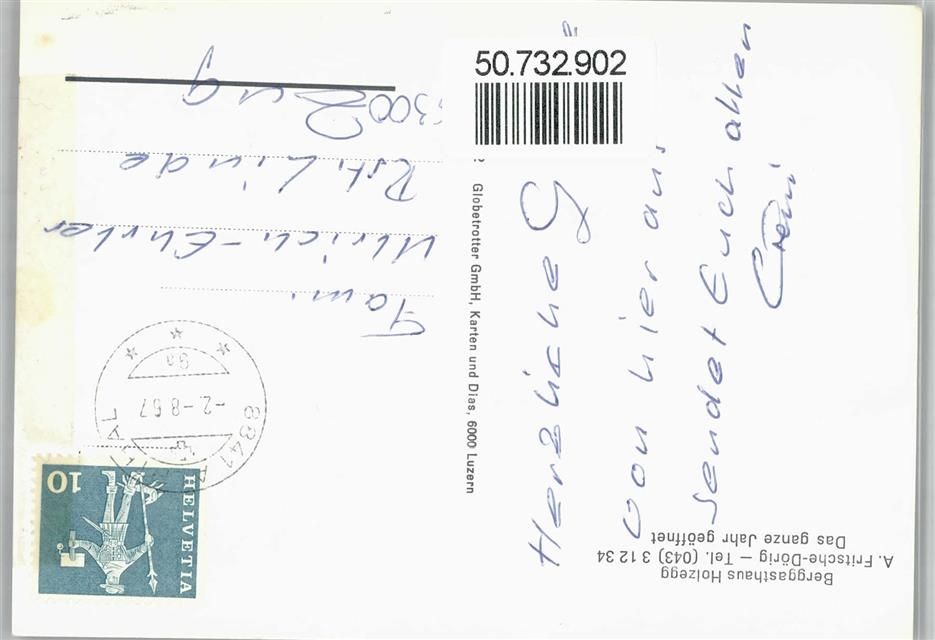 Berggasthaus Holzegg
A. Fritsche-Dörig – Tel. (043) 3 12 34
Das ganze Jahr geöffnet
Herzliche G
von hier aus
sendet Euch allen
Globetrotter GmbH, Karten und Dias, 6000 Luzern
50.732.902
HELVETIA
10
8841
-2.-8.67
Fam.
Ulrich-Ehrler
Rst. Linde
6300 Zug